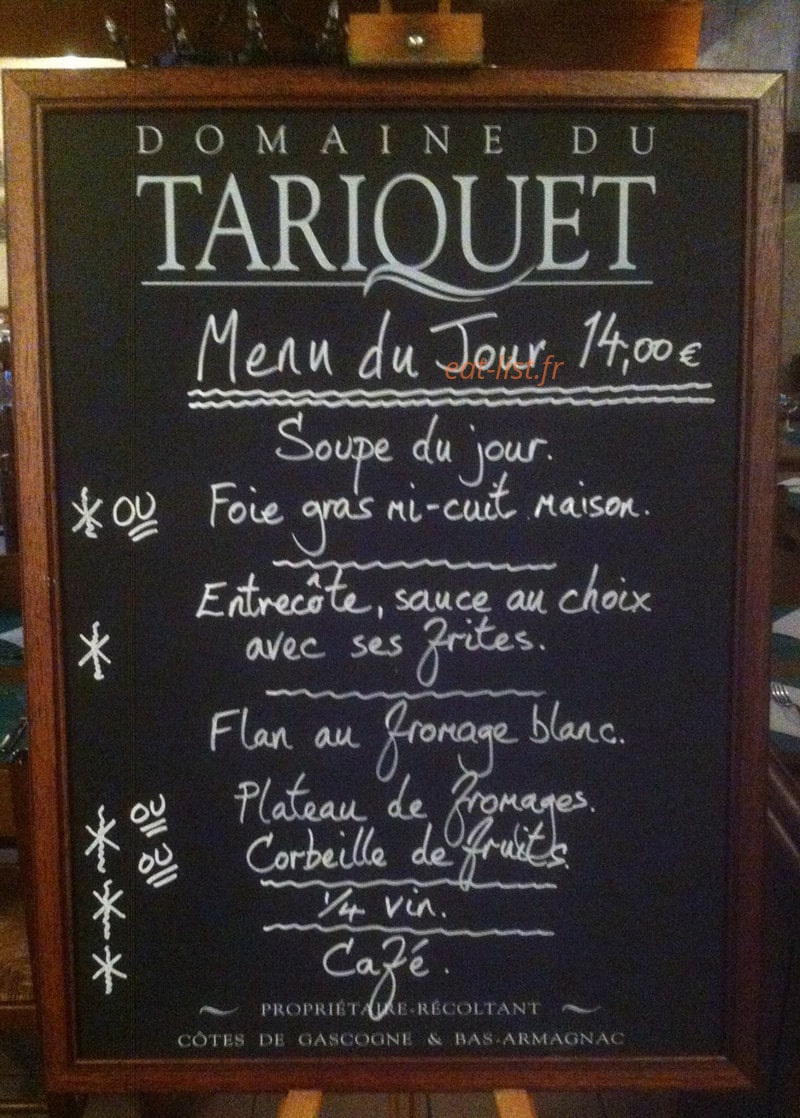 DOMAINE DU
TARIQUET
Menu du Jour 14,00 €
eat-list.fr
Soupe du jour.
OU Foie gras mi-cuit maison.
Entrecôte, sauce au choix
avec ses frites.
Flan au fromage blanc.
OU Plateau de fromages.
OU Corbeille de fruits.
1/4 vin.
Café.
PROPRIÉTAIRE-RÉCOLTANT
CÔTES DE GASCOGNE & BAS-ARMAGNAC